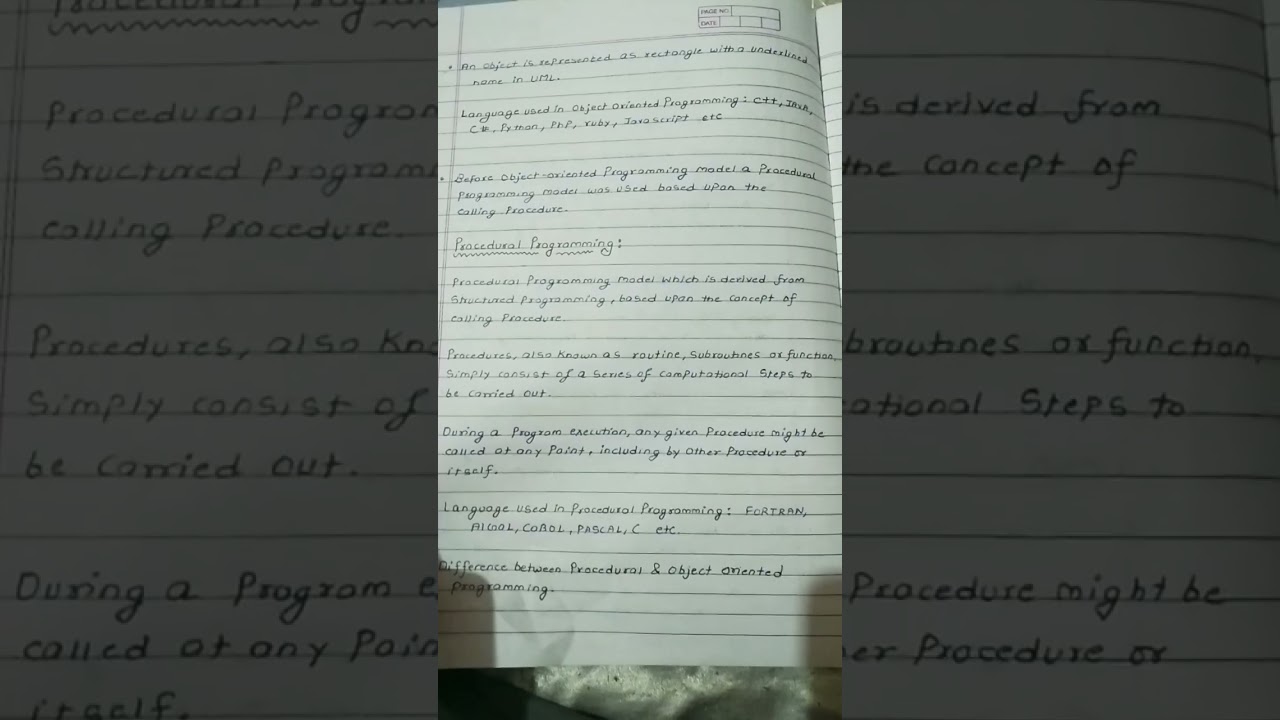 PAGE NO.
DATE
• An object is represented as rectangle with a underlined
name in UML.
Language used in Object Oriented Programming: C++, JAVA,
C#, Python, PhP, ruby, Javascript etc
• Before Object-oriented Programming model a Procedural
Programming model was used based upon the
calling Procedure.
Procedural Programming:
Procedural Programming model which is derived from
Structured Programming, based upon the concept of
calling Procedure.
Procedures, also known as routine, Subroutines or function,
Simply consist of a Series of computational Steps to
be carried out.
During a Program execution, any given Procedure might be
called at any Point, including by other Procedure or
itself.
Language used in Procedural Programming: FORTRAN,
AlGOL, COBOL, PASCAL, C etc.
Difference between Procedural & Object oriented
Programming.